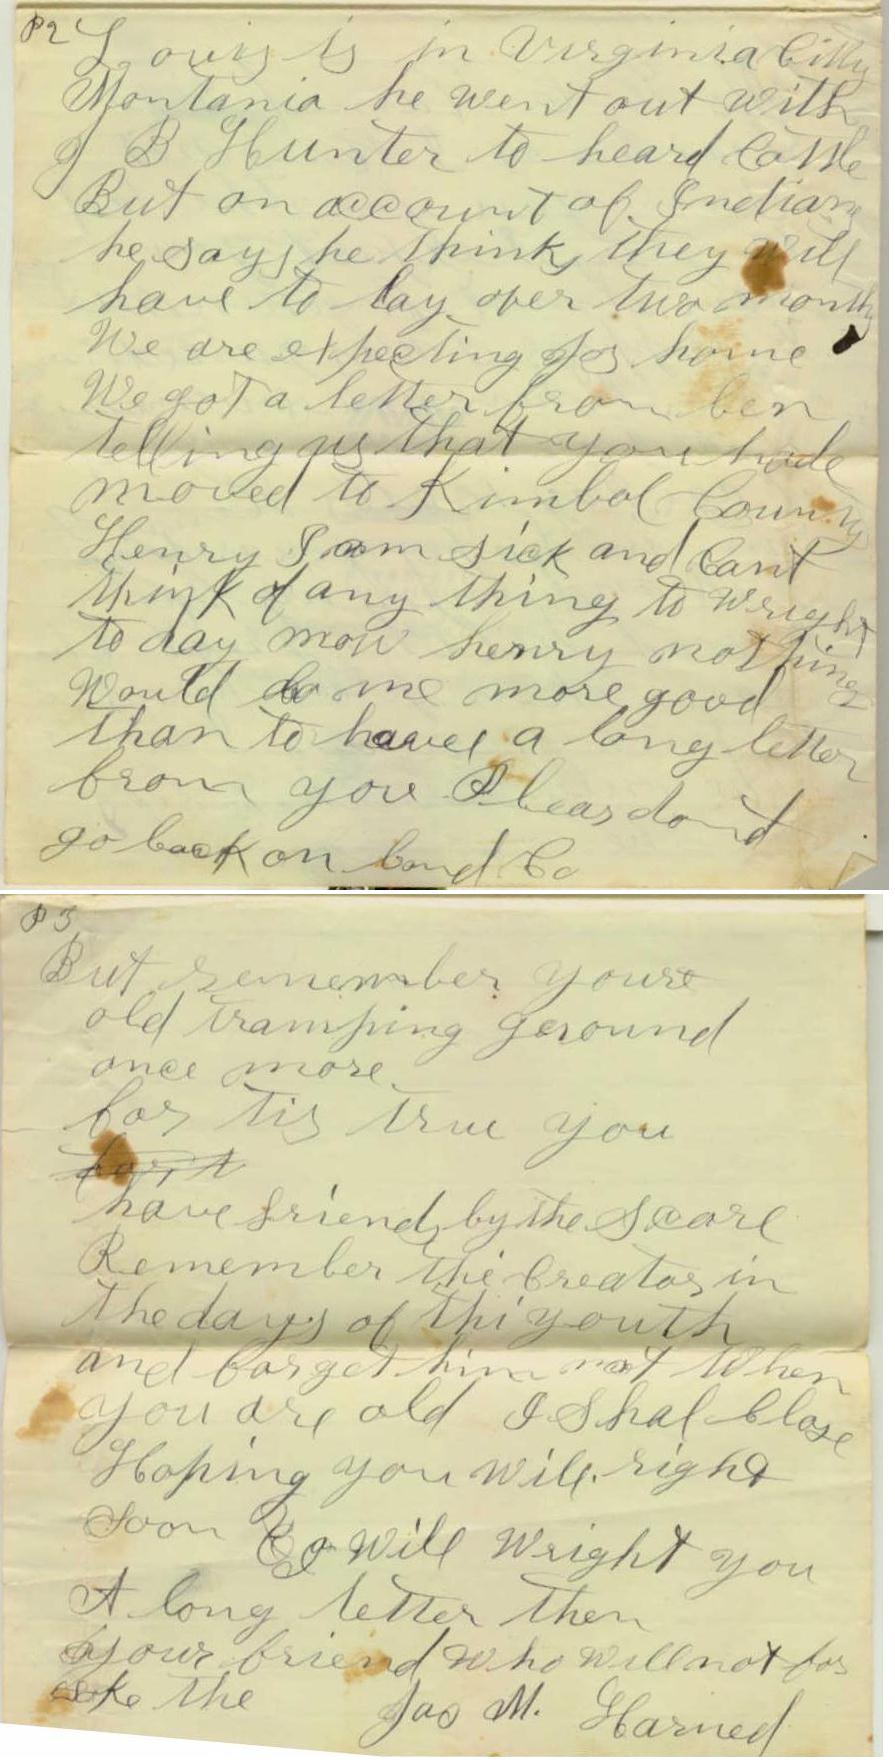 P2 Louis is in Virginia City
Montania he went out with
J B Hunter to heard Cattle
But on account of Indians
he says he thinks they will
have to lay over two months
We are expecting Jos home
We got a letter from ben
telling us that you hade
moved to Kimbol County
Henry I am sick and Cant
think of any thing to Wright
to day mow henry nothing
Would do me more good
than to have a long letter
from you Pleas dond
go back on bond Co
P 3
But remember youre
old tramping geround
once more
for tis true you
have friends by the Scare
Remember the Creator in
the days of thi youth
and forget him not When
you are old I Shal Close
Hoping you will right
Soon I Will Wright you
A long letter then
your friend Who Will not for
sake the Jas M. Harned